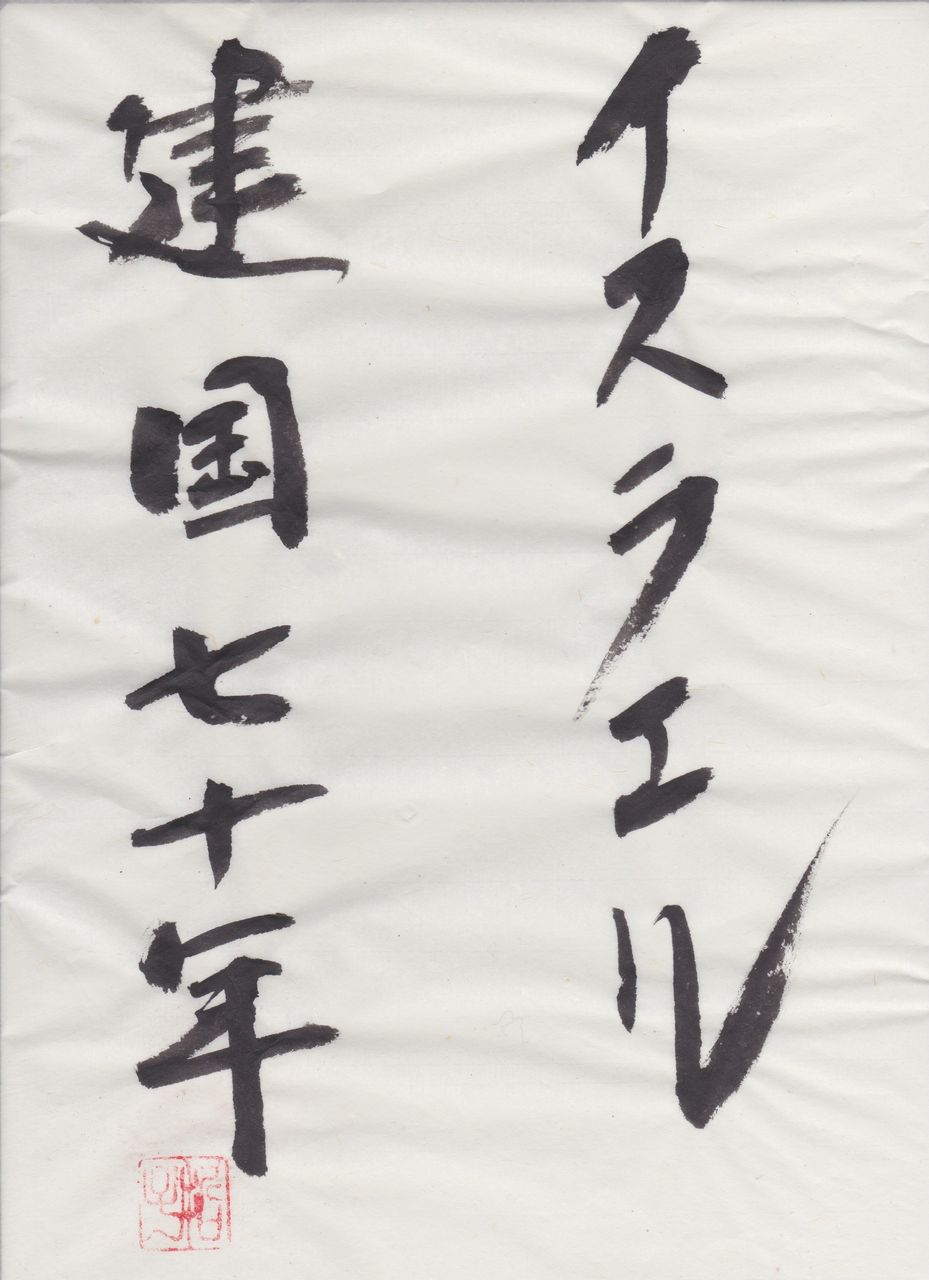 イスラエル
建国七十年